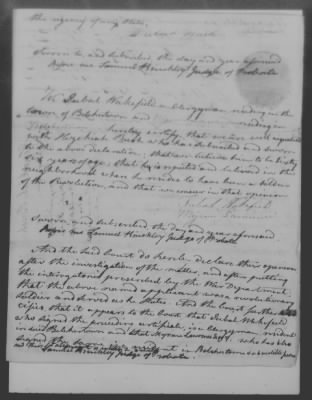 the agency of any State.
Sworn to and subscribed, the day and year aforesaid
Before me Samuel Hinckley Judge of Probate
We Jubal Wakefield a Clergyman residing in the
town of Belchertown and residing in
hereby certify that we are well acquainted
with Hezekiah Root who has subscribed and sworn
to the above declaration; that we believe him to be
six years of age; that he is reputed and believed in the
neighborhood where he resides to have been a soldier
of the Revolution, and that we concur in that opinion
Jubal Wakefield
Myron Lawrence
Sworn and subscribed the day and year aforesaid
Before me Samuel Hinckley Judge of Probate
And the said Court do hereby declare their opinion
after the investigation of the matter, and after putting
the interrogatories prescribed by the War Department
that the above named applicant was a revolutionary
soldier and served as he States. And the Court further
certifies that it appears to the Court that Jubal Wakefield
who signed the preceding certificate, is a Clergyman resident
in said Belchertown and that Myron Lawrence who has also
signed the same is a resident in Belchertown & a credible person
Samuel Hinckley Judge of Probate